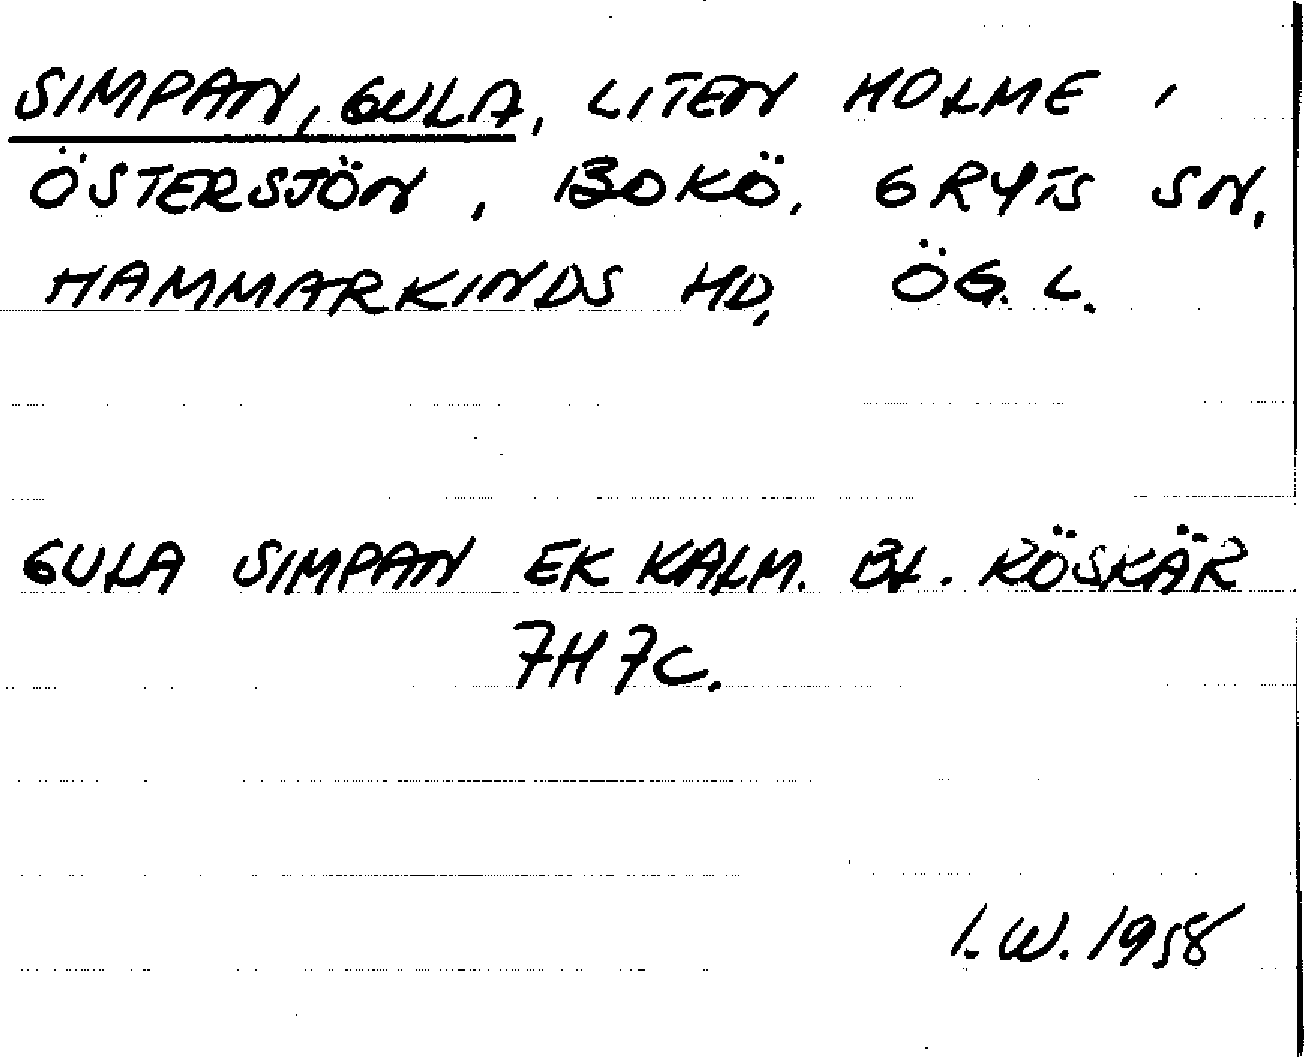 SIMPAN, GULA, LITEN HOLME I
ÖSTERSJÖN, BOKÖ, GRYTS SN,
HAMMARKINDS HD, ÖG. L.
GULA SIMPAN EK KALM. BL. RÖSKÄR
7H 7C.
I. W. 1958